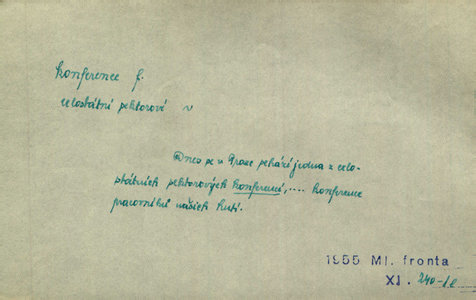 konference f.
celostátní sektorové v
Dnes se v Praze schází jedna z celo-
státních sektorových konferencí, .... konference
pracovníků našich hutí.
1955 Ml. fronta
XI. 240-1e